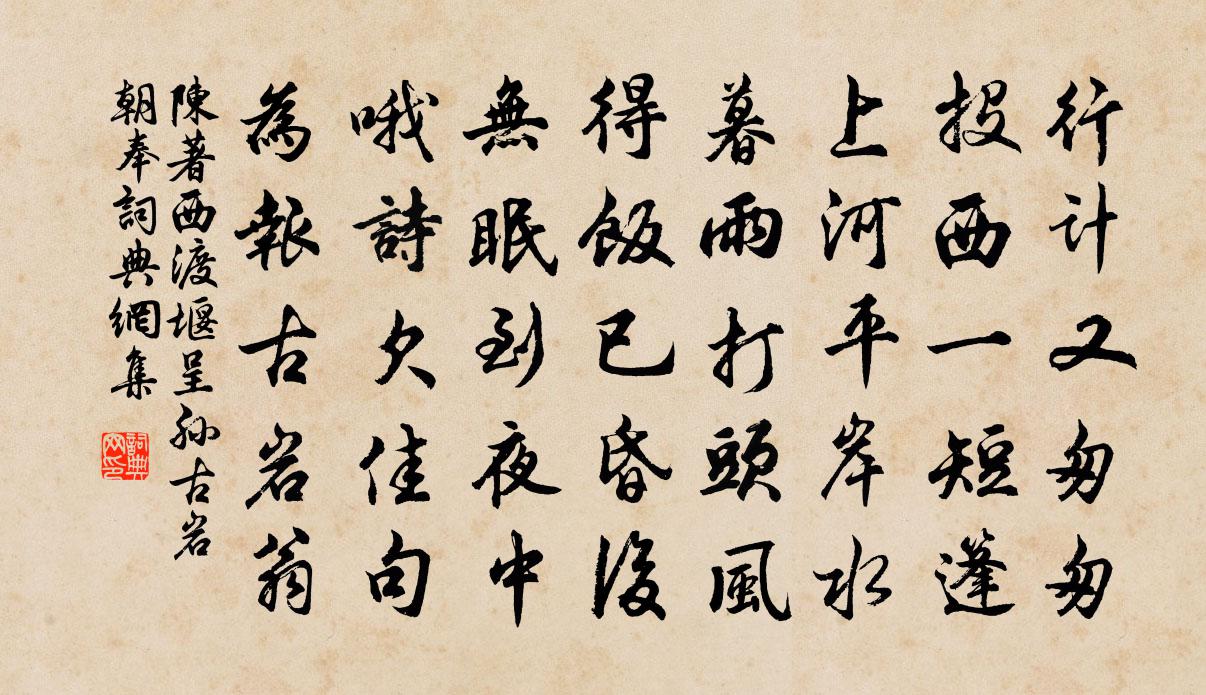 行计又匆匆
投西一短篷
上河平岸水
暮雨打頭風
得飯已昏後
無眠到夜中
哦詩欠佳句
為報古岩翁
陳著西渡堰呈孫古岩
朝奉詞典網集
詞典
网印